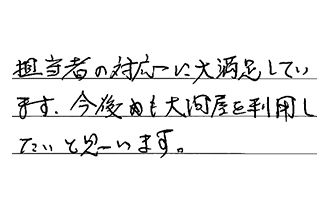 担当者の対応に大満足してい
ます、今後も大問屋を利用し
たいと思います。